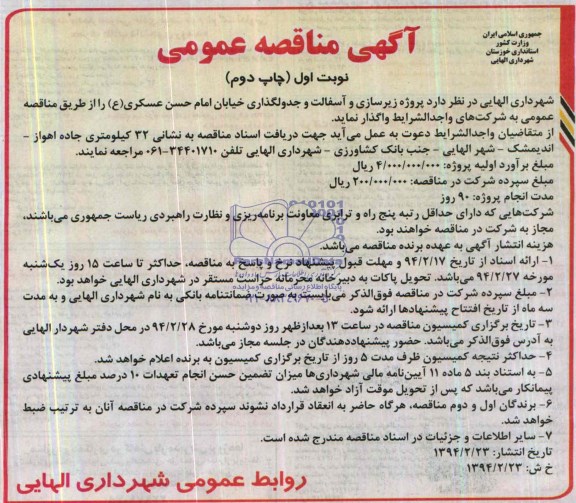 جمهوری اسلامی ایران
وزارت کشور
استانداری خوزستان
شهرداری الهایی
آگهی مناقصه عمومی
نوبت اول (چاپ دوم)
شهرداری الهایی در نظر دارد پروژه زیرسازی و آسفالت و جدولگذاری خیابان امام حسن عسکری(ع) را از طریق مناقصه
عمومی به شرکت‌های واجدالشرایط واگذار نماید.
از متقاضیان واجدالشرایط دعوت به عمل می‌آید جهت دریافت اسناد مناقصه به نشانی ۳۲ کیلومتری جاده اهواز -
اندیمشک - شهر الهایی - جنب بانک کشاورزی - شهرداری الهایی تلفن ۳۴۴۰۱۷۱۰-۰۶۱ مراجعه نمایند.
مبلغ برآورد اولیه پروژه: ۴/۰۰۰/۰۰۰/۰۰۰ ریال
مبلغ سپرده شرکت در مناقصه: ۲۰۰/۰۰۰/۰۰۰ ریال
مدت انجام پروژه: ۹۰ روز
شرکت‌هایی که دارای حداقل رتبه پنج راه و ترابری معاونت برنامه‌ریزی و نظارت راهبردی ریاست جمهوری می‌باشند،
مجاز به شرکت در مناقصه خواهند بود.
هزینه انتشار آگهی به عهده برنده مناقصه می‌باشد.
۱- ارائه اسناد از تاریخ ۹۴/۲/۱۷ و مهلت قبول پیشنهاد نرخ و پاسخ به مناقصه، حداکثر تا ساعت ۱۵ روز یک‌شنبه
مورخه ۹۴/۲/۲۷ می‌باشد. تحویل پاکات به دبیرخانه محرمانه حراست مستقر در شهرداری الهایی خواهد بود.
۲- مبلغ سپرده شرکت در مناقصه فوق‌الذکر می‌بایست به صورت ضمانتنامه بانکی به نام شهرداری الهایی و به مدت
سه ماه از تاریخ افتتاح پیشنهادها ارائه شود.
۳- تاریخ برگزاری کمیسیون مناقصه در ساعت ۱۳ بعدازظهر روز دوشنبه مورخ ۹۴/۲/۲۸ در محل دفتر شهردار الهایی
به آدرس فوق‌الذکر می‌باشد. حضور پیشنهاددهندگان در جلسه مجاز می‌باشد.
۴- حداکثر نتیجه کمیسیون ظرف مدت ۵ روز از تاریخ برگزاری کمیسیون به برنده اعلام خواهد شد.
۵- به استناد بند ۵ ماده ۱۱ آیین‌نامه مالی شهرداری‌ها میزان تضمین حسن انجام تعهدات ۱۰ درصد مبلغ پیشنهادی
پیمانکار می‌باشد که پس از تحویل موقت آزاد خواهد شد.
۶- برندگان اول و دوم مناقصه، هرگاه حاضر به انعقاد قرارداد نشوند سپرده شرکت در مناقصه آنان به ترتیب ضبط
خواهد شد.
۷- سایر اطلاعات و جزئیات در اسناد مناقصه مندرج شده است.
تاریخ انتشار: ۱۳۹۴/۲/۲۳
خ ش: ۱۳۹۴/۲/۲۳
روابط عمومی شهرداری الهایی